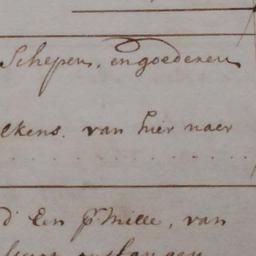 Schepen, en goederen
lkens. van hier naer
d Een p. Mille, van